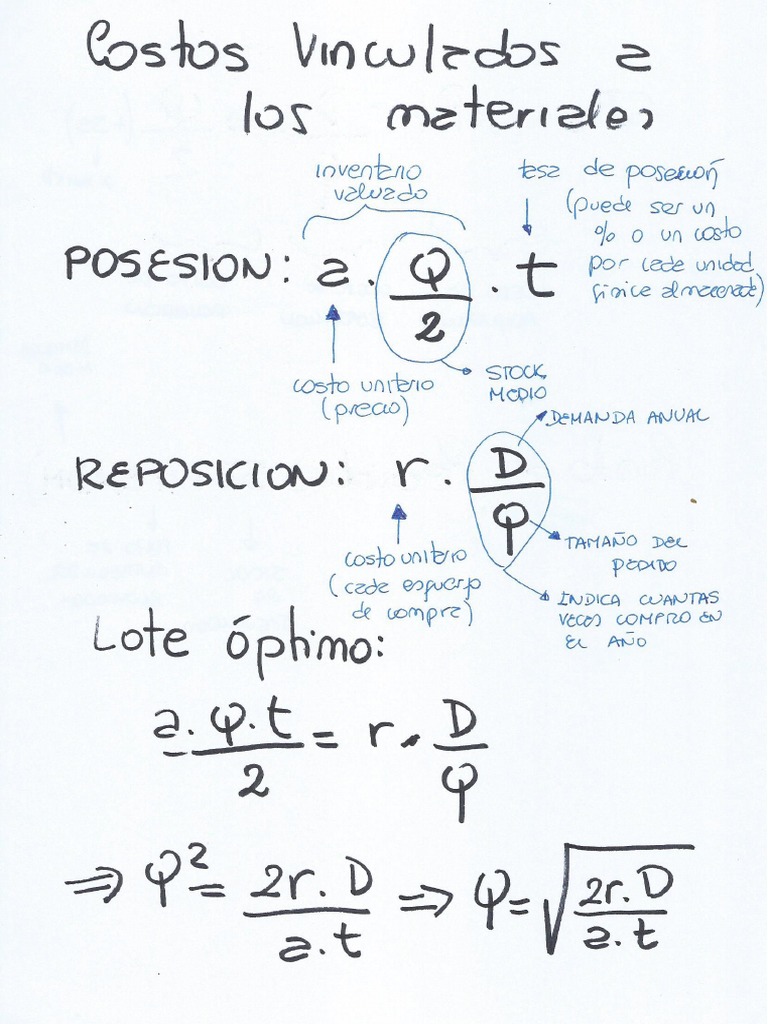 Costos Vinculados a
los materiales
inventario
valuado
tasa de posesión
(puede ser un
% o un costo
por cada unidad
física almacenada)
POSESION: a . Q/2 . t
costo unitario
(precio)
STOCK
MEDIO
DEMANDA ANUAL
REPOSICION: r . D/Q
costo unitario
(cada esfuerzo
de compra)
TAMAÑO DEL
PEDIDO
INDICA CUANTAS
VECES COMPRO EN
EL AÑO
Lote óptimo:
a.Q.t/2 = r . D/Q
⇒ Q² = 2r.D/a.t ⇒ Q = √(2r.D/a.t)